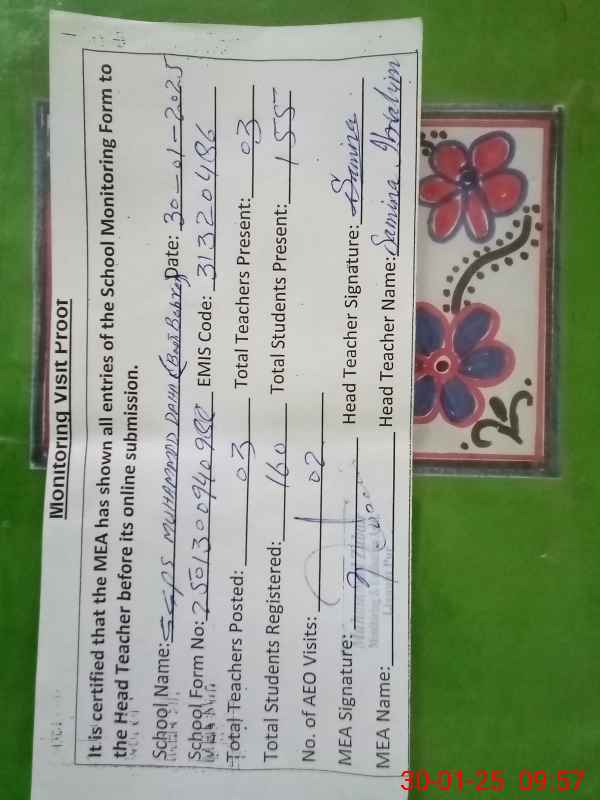 Monitoring Visit Proof
It is certified that the MEA has shown all entries of the School Monitoring Form to
the Head Teacher before its online submission.
School Name: GGPS MUHAMMAD Date: 30-01-2025
School Form No: EMIS Code: 31320486
Total Teachers Posted: 03 Total Teachers Present: 03
Total Students Registered: 160 Total Students Present: 155
No. of AEO Visits: 02
MEA Signature: Head Teacher Signature: Samina
MEA Name: Head Teacher Name: Samina Ibrahim
30-01-25 09:57